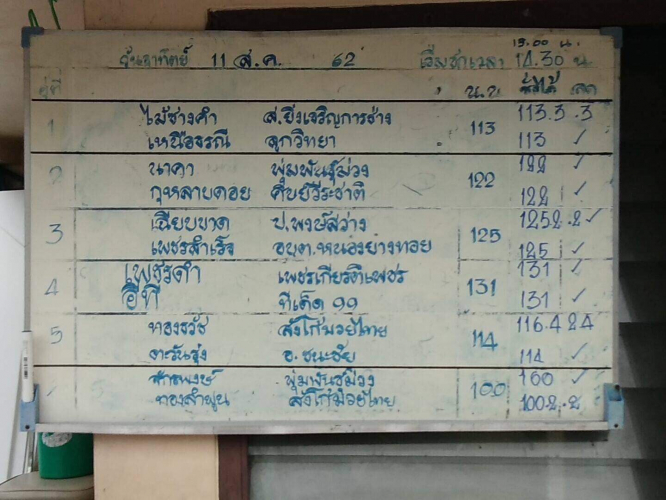 15.00 น.
วันอาทิตย์ 11 ส.ค. 62 เริ่มชกเวลา 14.30 น
คู่ที่ น.น ชั่งได้
1 ไม้ช่างคำ ส.ยิ่งเจริญการช่าง 113 113.3 .3
เหนือธรณี ลูกวิทยา 113 ✓
2 นาคา พุ่มพันธุ์ม่วง 122 122 ✓
กุหลาบดอย ศิษย์วีระชาติ 122 ✓
3 เฉียบขาด ป.พงษ์สว่าง 125 125.2 .2 ✓
เพชรสำเร็จ อบต.หนองยางทอย 125 ✓
4 เพชรดำ เพชรเกียรติเพชร 131 131 ✓
อีที ทีเด็ด 99 131 ✓
5 ทองธวัช สิงโกมวยไทย 114 116.4 2.4
ตะวันรุ่ง อ. ชนะชัย 114 ✓
พุ่มพันธุ์ม่วง 100 100 ✓
ทองลำพูน สิงโกมวยไทย 100.2 .2